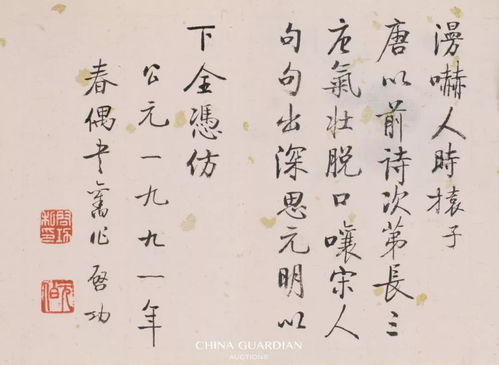 漫嚇人時子
唐以前诗次第長三
唐氣壮脱口嚷宋人
句句出深思元明以
下全憑仿
公元一九九一年
春偶書舊作啓功
啓功私印
元白
CHINA GUARDIAN
AUCTIONS